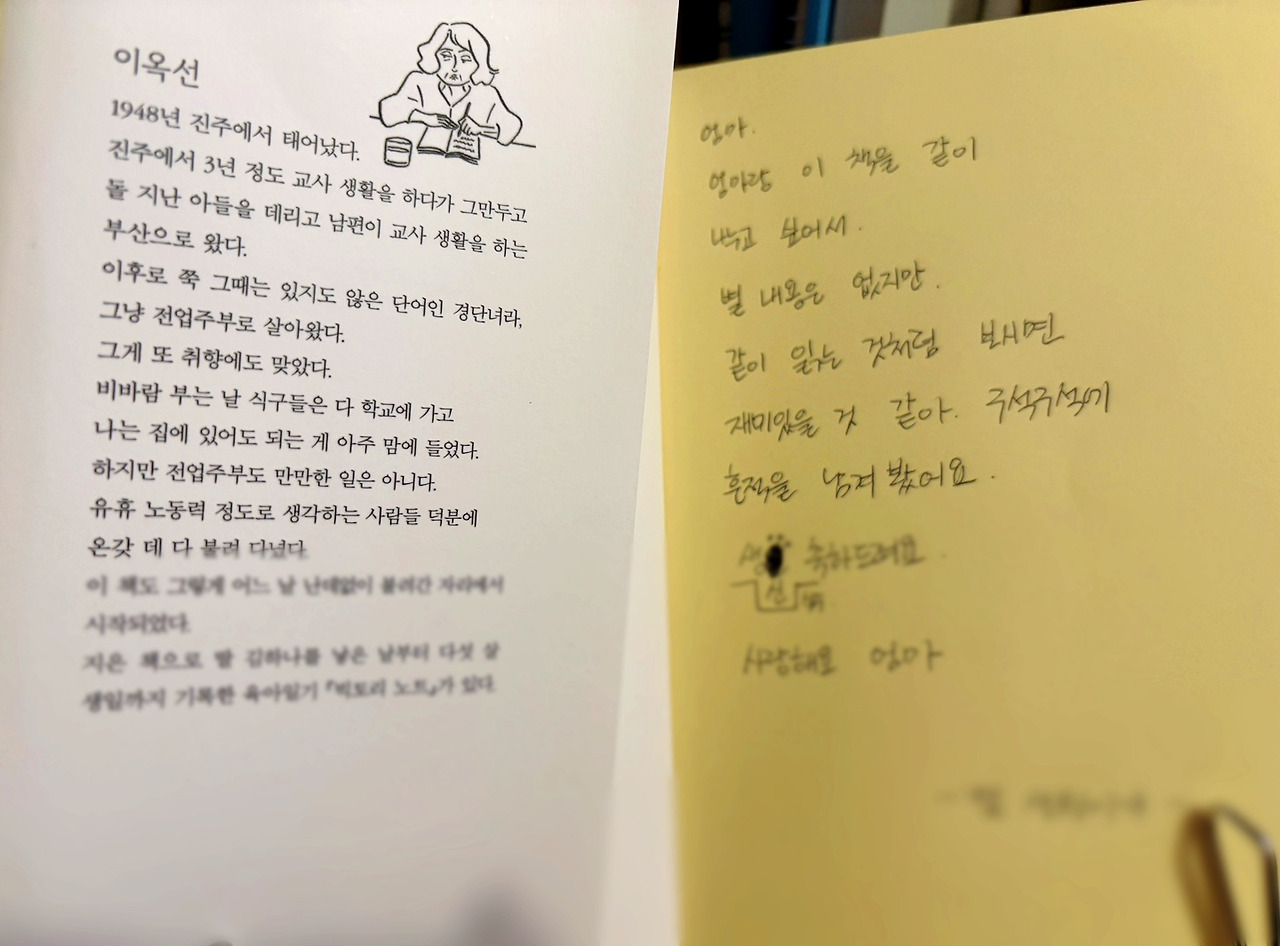 이옥선
1948년 진주에서 태어났다.
진주에서 3년 정도 교사 생활을 하다가 그만두고
돌 지난 아들을 데리고 남편이 교사 생활을 하는
부산으로 왔다.
이후로 쭉 그때는 있지도 않은 단어인 경단녀라,
그냥 전업주부로 살아왔다.
그게 또 취향에도 맞았다.
비바람 부는 날 식구들은 다 학교에 가고
나는 집에 있어도 되는 게 아주 맘에 들었다.
하지만 전업주부도 만만한 일은 아니다.
유휴 노동력 정도로 생각하는 사람들 덕분에
온갖 데 다 불려 다녔다.
이 책도 그렇게 어느 날 난데없이 불려간 자리에서
시작되었다.
지은 책으로 딸 김하나를 낳은 날부터 다섯 살
생일까지 기록한 육아일기 『빅토리 노트』가 있다.
엄마.
엄마랑 이 책을 같이
보고 싶어서.
별 내용은 없지만.
같이 읽는 것처럼 보시면
재미있을 것 같아. 구석구석에
흔적을 남겨 봤어요.
생신 축하드려요.
사랑해요 엄마